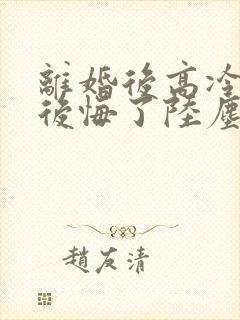 離婚後高冷
後悔了陸塵
趙友清